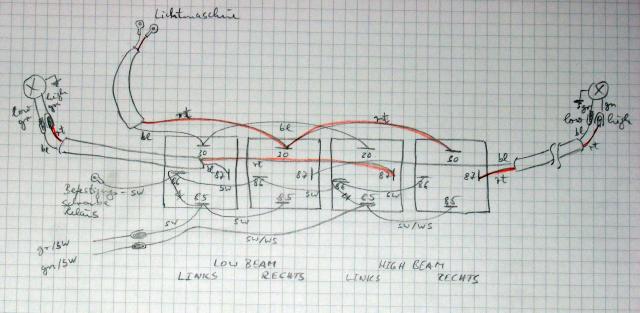 Lichtmaschine
low
gr
high
gn
rt
bl
rt
bl
bl
rt
gr
gn
low
high
rt
bl
bl
rt
30
30
30
30
rt
87
87
87
86
86
86
86
sw
sw
Befestigungs-
schraube
Relais
sw
85
85
85
85
sw
sw
sw/ws
sw/ws
gr/sw
gn/sw
LOW BEAM
HIGH BEAM
LINKS
RECHTS
LINKS
RECHTS